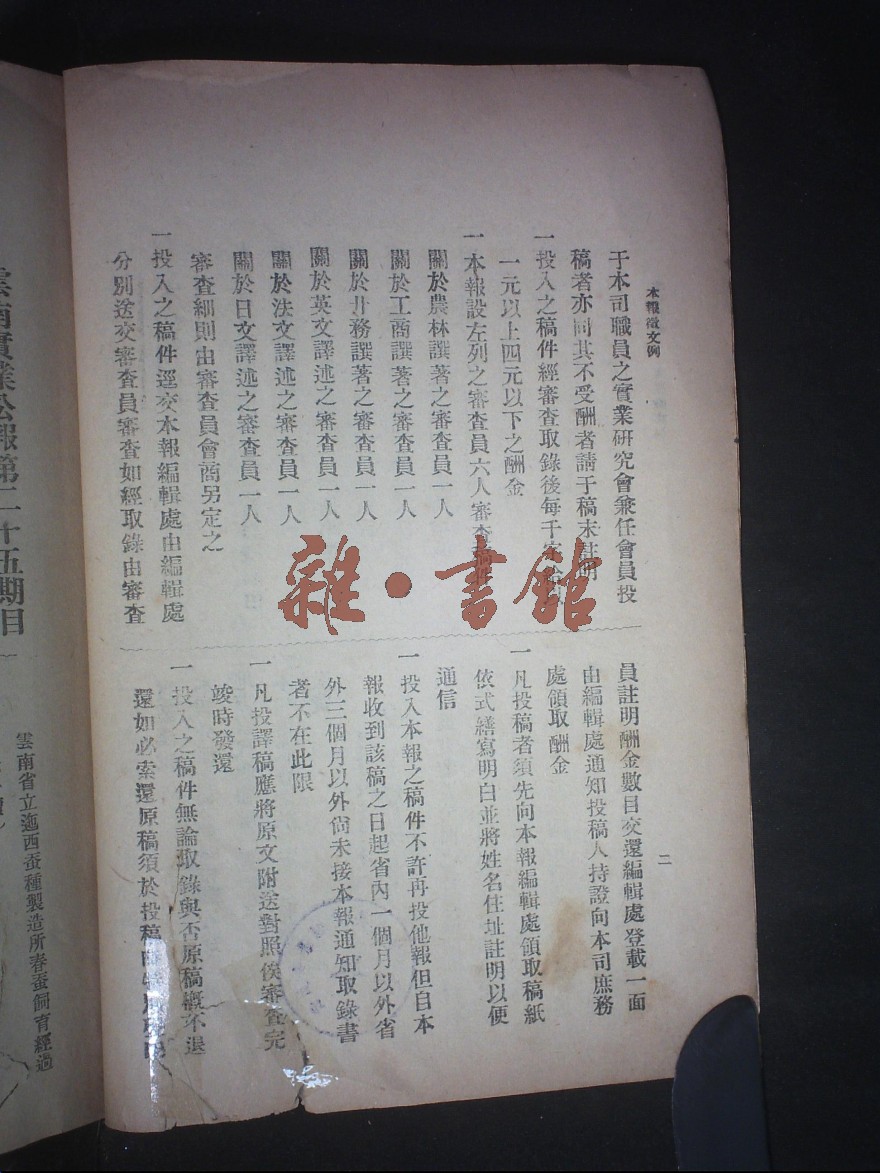 本報徵文例
于本司職員之實業研究會兼任會員投
稿者亦同其不受酬者請于稿末註明
一投入之稿件經審查取錄後每千字
一元以上四元以下之酬金
一本報設左列之審查員六人審查稿件
關於農林譔著之審查員一人
關於工商譔著之審查員一人
關於廾務譔著之審查員一人
關於英文譯述之審查員一人
關於法文譯述之審查員一人
關於日文譯述之審查員一人
審查細則由審查員會商另定之
一投入之稿件逕交本報編輯處由編輯處
分別送交審查員審查如經取錄由審查
二
員註明酬金數目交還編輯處登載一面
由編輯處通知投稿人持證向本司庶務
處領取酬金
一凡投稿者須先向本報編輯處領取稿紙
依式繕寫明白並將姓名住址註明以便
通信
一投入本報之稿件不許再投他報但自本
報收到該稿之日起省內一個月以外省
外三個月以外尙未接本報通知取錄書
者不在此限
一凡投譯稿應將原文附送對照俟審查完
竣時發還
一投入之稿件無論取錄與否原稿概不退
還如必索還原稿須於投稿時
雲南實業公報第二十五期目
雲南省立迤西蚕種製造所春蚕飼育經過
雜·書館